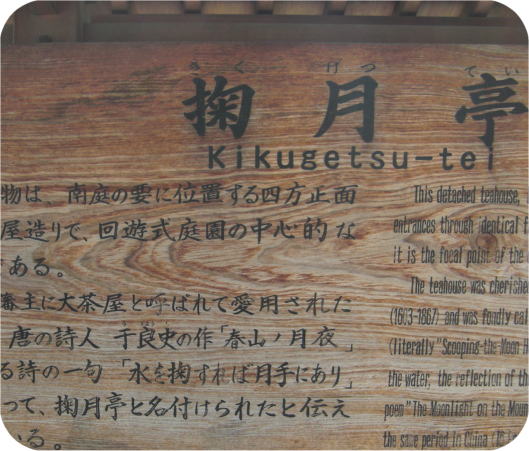 きく げつ てい
掬月亭
Kikugetsu-tei
物は、南庭の要に位置する四方正面
屋造りで、回遊式庭園の中心的な
ある。
藩主に大茶屋と呼ばれて愛用された
唐の詩人 于良史の作「春山ノ月夜」
る詩の一句 「水を掬すれば月手にあり」
って、掬月亭と名付けられたと伝え
いる。
This detached teahouse,
entrances through identical f
it is the focal point of the
The teahouse was cherishe
(1603-1867) and was fondly cal
(literally "Scooping-the-Moon H
the water, the reflection of th
poem "The Moonlight on the Moun
the same period in China